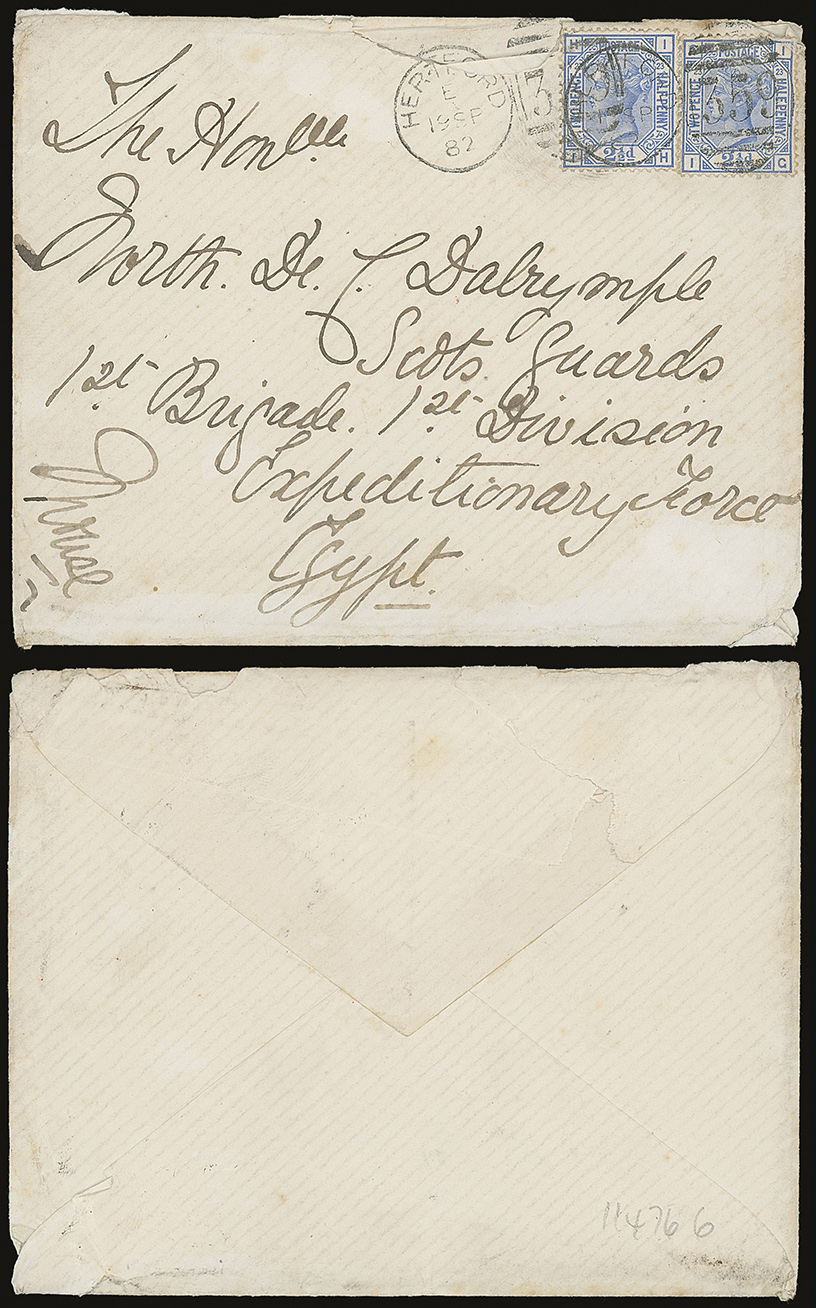 HERTFORD
E
19 SP
82
359
POSTAGE
TWO PENCE HALFPENNY
2½d
H I
H
I
I G
The Honble
North. De. C. Dalrymple
Scots Guards
1st Brigade. 1st Division
Expeditionary Force
Egypt.
114766